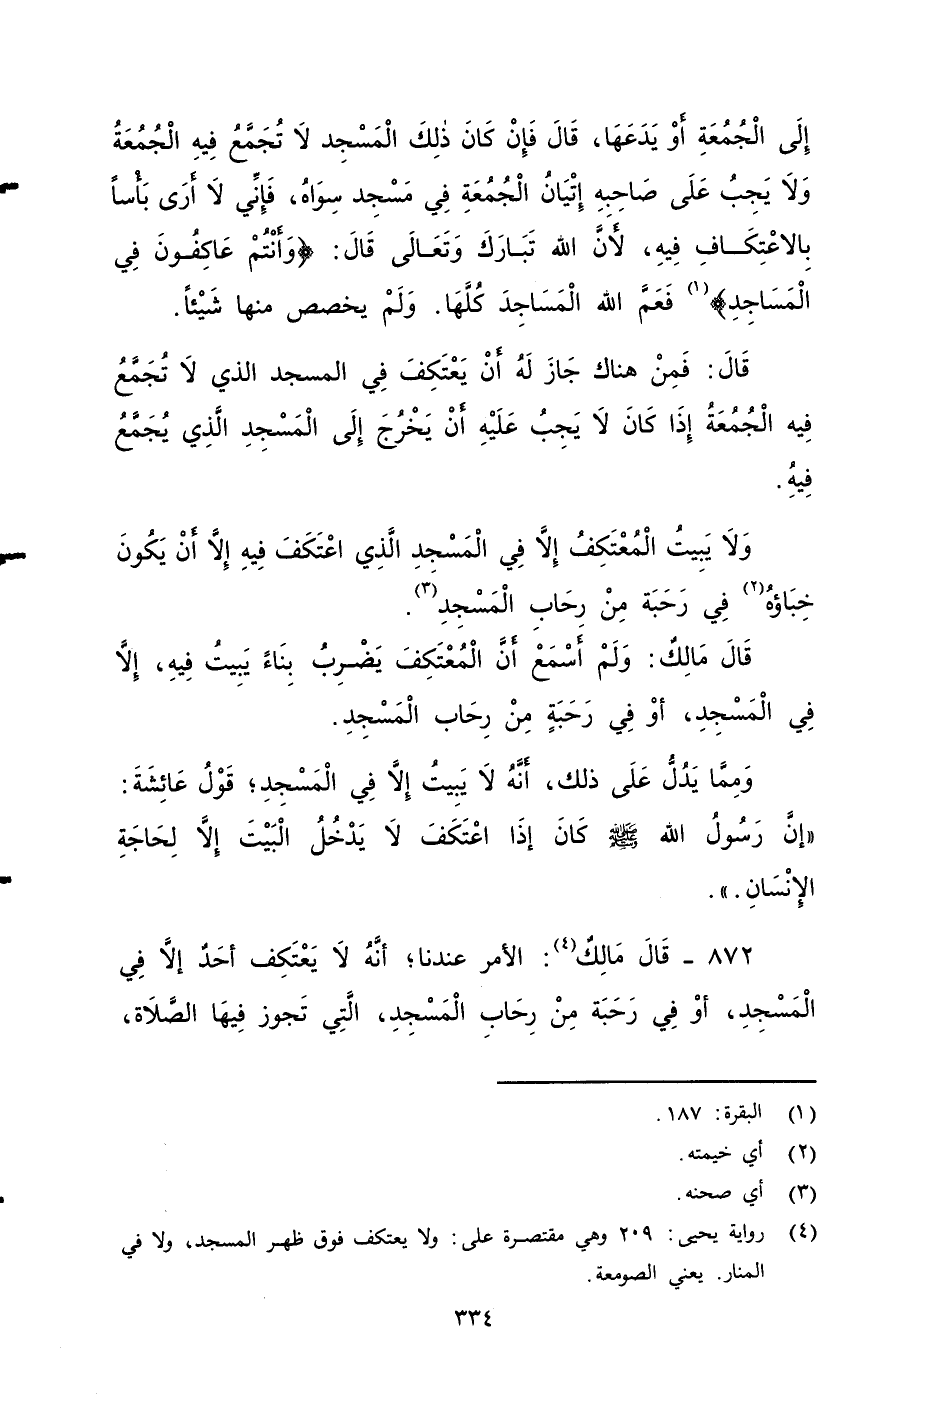 إِلَى الْجُمُعَةِ أَوْ يَدَعَهَا، قَالَ فَإِنْ كَانَ ذٰلِكَ الْمَسْجِد لَا تُجَمَّعُ فِيهِ الْجُمُعَةُ
وَلَا يَجِبُ عَلَى صَاحِبِهِ إِتْيَانُ الْجُمُعَةِ فِي مَسْجِد سِوَاهُ، فَإِنِّي لَا أَرَى بَأْساً
بِالاعْتِكَافِ فِيهِ، لأَنَّ الله تَبَارَكَ وَتَعَالَى قَالَ: ﴿وَأَنْتُمْ عَاكِفُونَ فِي
الْمَسَاجِدِ﴾(١) فَعَمَّ الله الْمَسَاجِدَ كُلَّهَا. وَلَمْ يخصص منها شَيْئاً.
قَالَ: فَمِنْ هناك جَازَ لَهُ أَنْ يَعْتَكِفَ فِي المسجد الذي لَا تُجَمَّعُ
فِيه الْجُمُعَةُ إِذَا كَانَ لَا يَجِبُ عَلَيْهِ أَنْ يَخْرُجَ إِلَى الْمَسْجِدِ الَّذِي يُجَمَّعُ
فِيهُِ.
وَلَا يَبِيتُ الْمُعْتَكِفُ إِلَّا فِي الْمَسْجِدِ الَّذِي اعْتَكَفَ فِيهِ إِلَّا أَنْ يَكُونَ
خِبَاؤهُ(٢) فِي رَحَبَة مِنْ رِحَابِ الْمَسْجِدِ(٣).
قَالَ مَالِكٌ: وَلَمْ أَسْمَعْ أَنَّ الْمُعْتَكِفَ يَضْرِبُ بِنَاءً يَبِيتُ فِيهِ، إِلَّا
فِي الْمَسْجِدِ، أوْ فِي رَحَبَةٍ مِنْ رِحَاب الْمَسْجِدِ.
وَمِمَّا يَدُلُّ عَلَى ذلك، أَنَّهُ لَا يَبِيتُ إِلَّا فِي الْمَسْجِدِ؛ قَوْلُ عَائِشَةَ:
«إنَّ رَسُولُ الله ﷺ كَانَ إذَا اعْتَكَفَ لَا يَدْخُلُ الْبَيْتَ إِلَّا لِحَاجَةِ
الإنْسَانِ.».
٨٧٢ - قَالَ مَالِكٌ(٤): الأمر عندنا؛ أنَّهُ لَا يَعْتَكِف أحَدٌ إلَّا فِي
الْمَسْجِدِ، أوْ فِي رَحَبَة مِنْ رِحَابِ الْمَسْجِدِ، الَّتِي تَجوز فِيهَا الصَّلَاة،
(١) البقرة: ١٨٧.
(٢) أي خيمته.
(٣) أي صحنه.
(٤) رواية يحيى: ٢٠٩ وهي مقتصرة على: ولا يعتكف فوق ظهر المسجد، ولا في
المنار. يعني الصومعة.
٣٣٤